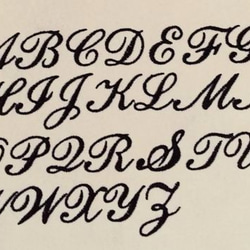 ABCDEFG
HIJKLM
OPQRSTU
WXYZ